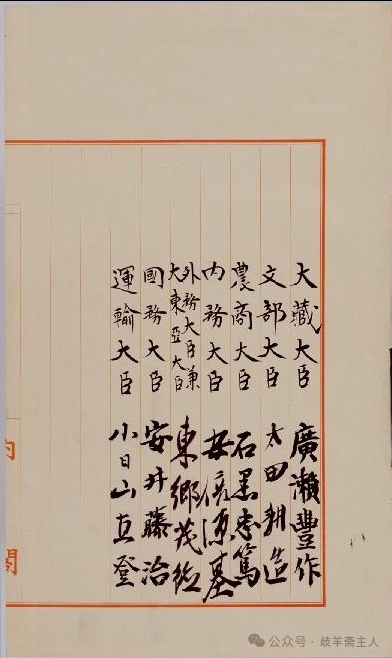 大藏大臣 廣瀨豐作
文部大臣 太田耕造
農商大臣 石黑忠篤
内務大臣 安倍源基
外務大臣兼
大東亞大臣 東鄉茂德
國務大臣 安井藤治
運輸大臣 小日山直登
内閣
公众号 · 歧羊斋主人